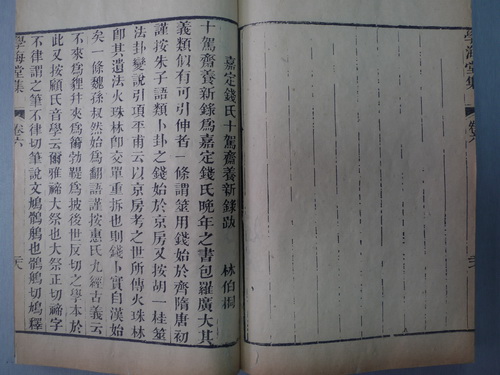 嘉定錢氏十駕齋養新錄跋
林伯桐
十駕齋養新錄爲嘉定錢氏晚年之書包羅廣大其
義類似有可引伸者一條謂筮用錢始於齊隋唐初
謹按朱子語類卜卦之錢始於京房又按胡一桂筮
法卦變說引項平甫云以京房考之世所傳火珠林
卽其遺法火珠林卽交單重拆也則錢卜實自漢始
矣一條魏孫叔然始爲翻語謹按惠氏九經古義云
不來爲貍幷夾爲 勃鞮爲披後世反切之學本於
此又按顧氏音學云爾雅禘大祭也大祭正切禘字
不律謂之筆不律切筆說文鳩鶻鵃也鶻鵃切鳩釋
學海堂集
卷六
學海堂集